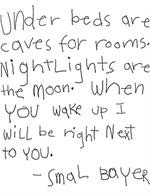 Under beds are
caves for rooms.
NightLights are
the Moon. When
you wake up I
will be right Next
to you.
- Smal Bayer